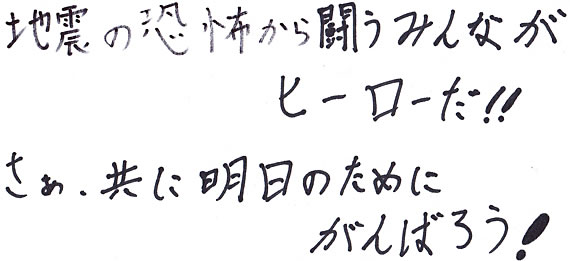 地震の恐怖から闘うみんなが
ヒーローだ!!
さぁ、共に明日のために
がんばろう!